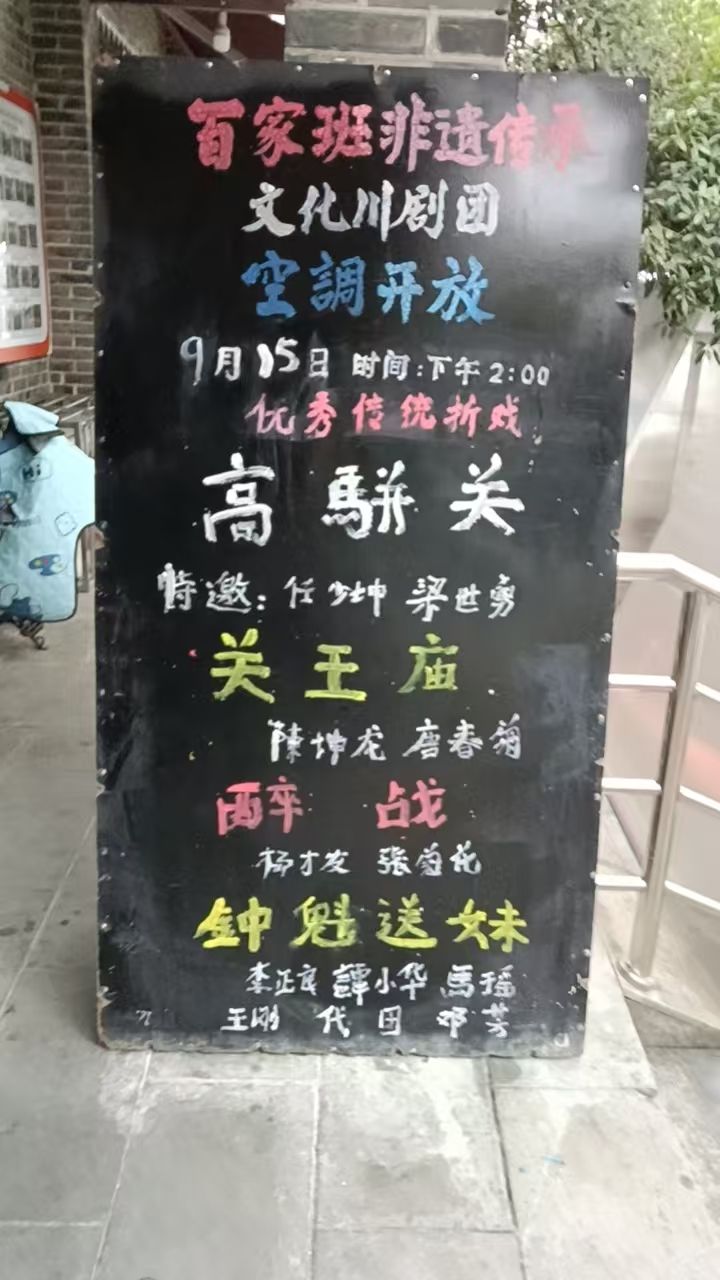 百家班非遗传承
文化川剧团
空調开放
9月15日 时间:下午2:00
优秀传统折戏
高駢关
特邀:任少坤 梁世勇
关王庙
陳坤龙 唐春菊
醉 战
杨才发 张菊花
钟魁送妹
李正良 譚小华 馬瑶
王刚 代田 邓芳